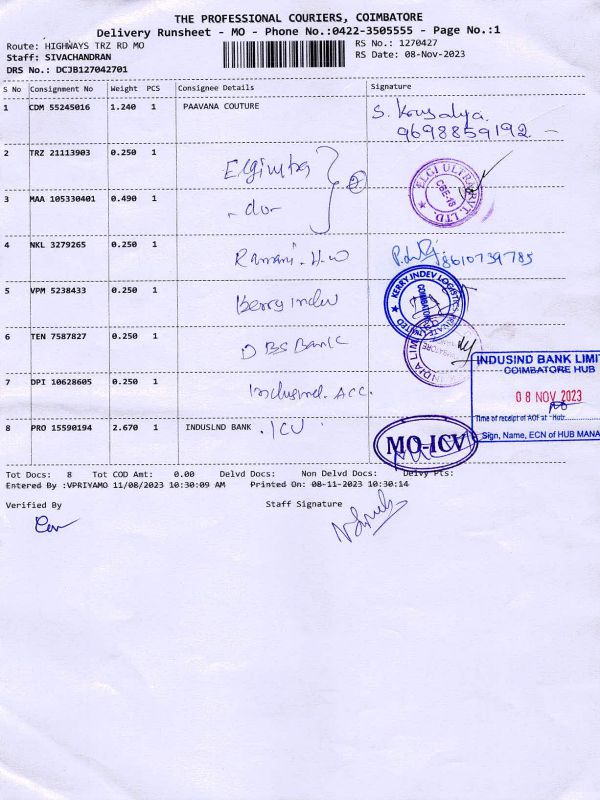 THE PROFESSIONAL COURIERS, COIMBATORE
Delivery Runsheet - MO - Phone No.:0422-3505555 - Page No.:1
Route: HIGHWAYS TRZ RD MO
RS No.: 1270427
Staff: SIVACHANDRAN
RS Date: 08-Nov-2023
DRS No.: DCJB127042701
S No Consignment No Weight PCS Consignee Details Signature
1 CDM 55245016 1.240 1 PAAVANA COUTURE
9698859192
2 TRZ 21113903 0.250 1
ELGI ULTRA PVT. LTD.
CBE-18
3 MAA 105330401 0.490 1 - do -
4 NKL 3279265 0.250 1 8610739785
5 VPM 5238433 0.250 1 Kerry indev
KERRY INDEV LOGISTICS PRIVATE LIMITED
6 TEN 7587827 0.250 1 DBS Bank
INDIA LIM
INDUSIND BANK LIMIT
COIMBATORE HUB
08 NOV 2023
Time of receipt of AOF at Hub:
Sign, Name, ECN of HUB MANA
7 DPI 10628605 0.250 1 Indusind. Acc.
8 PRO 15590194 2.670 1 INDUSLND BANK . ICU
MO-ICV
Tot Docs: 8 Tot COD Amt: 0.00 Delvd Docs: Non Delvd Docs: Delvy Pts:
Entered By :VPRIYAMO 11/08/2023 10:30:09 AM Printed On: 08-11-2023 10:30:14
Verified By Staff Signature